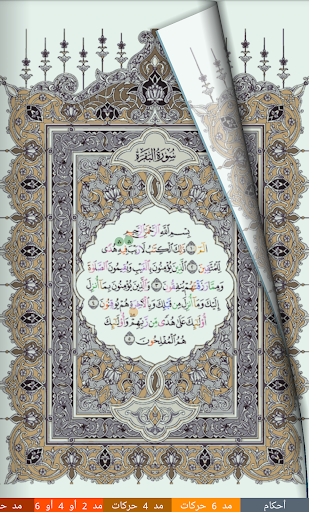 سُورَةُ البَقَرَةِ
بِسْمِ ٱللَّهِ ٱلرَّحْمَٰنِ ٱلرَّحِيمِ
الٓمٓ ١ ذَٰلِكَ ٱلْكِتَٰبُ لَا رَيْبَ ۛ فِيهِ ۛ هُدًى
لِّلْمُتَّقِينَ ٢ ٱلَّذِينَ يُؤْمِنُونَ بِٱلْغَيْبِ وَيُقِيمُونَ ٱلصَّلَوٰةَ
وَمِمَّا رَزَقْنَٰهُمْ يُنفِقُونَ ٣ وَٱلَّذِينَ يُؤْمِنُونَ بِمَآ أُنزِلَ
إِلَيْكَ وَمَآ أُنزِلَ مِن قَبْلِكَ وَبِٱلْءَاخِرَةِ هُمْ يُوقِنُونَ ٤
أُو۟لَٰٓئِكَ عَلَىٰ هُدًى مِّن رَّبِّهِمْ ۖ وَأُو۟لَٰٓئِكَ
هُمُ ٱلْمُفْلِحُونَ ٥
أحكام
مد 6 حركات
مد 4 حركات
مد 2 أو 4 أو 6
مد